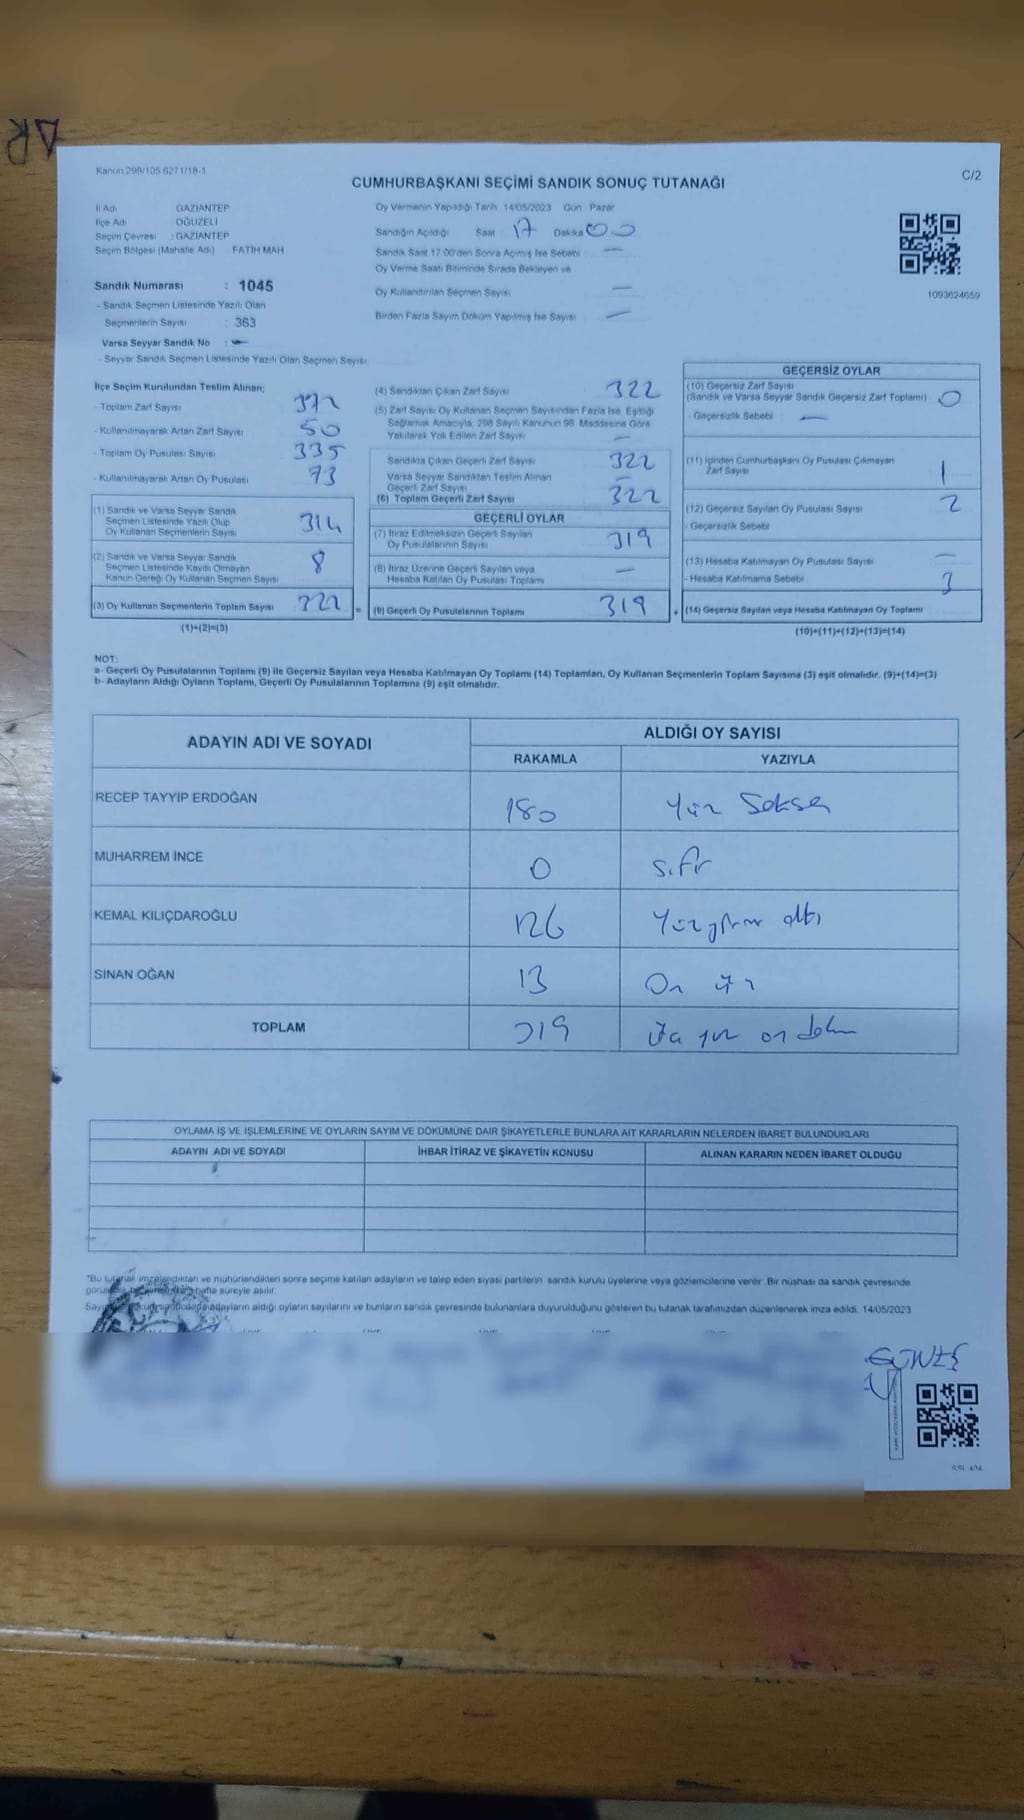 Kanun:298/105 6271/18-1
C/2
CUMHURBAŞKANI SEÇİMİ SANDIK SONUÇ TUTANAĞI
İl Adı GAZIANTEP
İlçe Adı OĞUZELİ
Seçim Çevresi : GAZIANTEP
Seçim Bölgesi (Mahalle Adı) FATİH MAH
Sandık Numarası : 1045
- Sandık Seçmen Listesinde Yazılı Olan
Seçmenlerin Sayısı : 363
Varsa Seyyar Sandık No : -
- Seyyar Sandık Seçmen Listesinde Yazılı Olan Seçmen Sayısı
Oy Vermenin Yapıldığı Tarih 14/05/2023 Gün Pazar
Sandığın Açıldığı Saat 17 Dakika 00
Sandık Saat 17:00'den Sonra Açılmış İse Sebebi -
Oy Verme Saati Bitiminde Sırada Bekleyen ve
Oy Kullandırılan Seçmen Sayısı -
Birden Fazla Sayım Döküm Yapılmış İse Sayısı -
1093624659
İlçe Seçim Kurulundan Teslim Alınan:
- Toplam Zarf Sayısı 372
- Kullanılmayarak Artan Zarf Sayısı 50
- Toplam Oy Pusulası Sayısı 335
- Kullanılmayarak Artan Oy Pusulası
(1) Sandık ve Varsa Seyyar Sandık
Seçmen Listesinde Yazılı Olup
Oy Kullanan Seçmenlerin Sayısı 314
(2) Sandık ve Varsa Seyyar Sandık
Seçmen Listesinde Kayıtlı Olmayan
Kanun Gereği Oy Kullanan Seçmen Sayısı 8
(3) Oy Kullanan Seçmenlerin Toplam Sayısı 322 =
(1)+(2)=(3)
(4) Sandıktan Çıkan Zarf Sayısı 322
(5) Zarf Sayısı Oy Kullanan Seçmen Sayısından Fazla İse, Eşitliği
Sağlamak Amacıyla, 298 Sayılı Kanunun 98. Maddesine Göre
Yakılarak Yok Edilen Zarf Sayısı -
Sandıkta Çıkan Geçerli Zarf Sayısı 322
Varsa Seyyar Sandıktan Teslim Alınan
Geçerli Zarf Sayısı -
(6) Toplam Geçerli Zarf Sayısı 322
GEÇERLİ OYLAR
(7) İtiraz Edilmeksizin Geçerli Sayılan
Oy Pusulalarının Sayısı 319
(8) İtiraz Üzerine Geçerli Sayılan veya
Hesaba Katılan Oy Pusulası Toplamı -
(9) Geçerli Oy Pusulalarının Toplamı 319 +
GEÇERSİZ OYLAR
(10) Geçersiz Zarf Sayısı
(Sandık ve Varsa Seyyar Sandık Geçersiz Zarf Toplamı) 0
- Geçersizlik Sebebi -
(11) İçinden Cumhurbaşkanı Oy Pusulası Çıkmayan
Zarf Sayısı 1
(12) Geçersiz Sayılan Oy Pusulası Sayısı 2
- Geçersizlik Sebebi
(13) Hesaba Katılmayan Oy Pusulası Sayısı -
- Hesaba Katılmama Sebebi 3
(14) Geçersiz Sayılan veya Hesaba Katılmayan Oy Toplamı
(10)+(11)+(12)+(13)=(14)
NOT:
a- Geçerli Oy Pusulalarının Toplamı (9) ile Geçersiz Sayılan veya Hesaba Katılmayan Oy Toplamı (14) Toplamları, Oy Kullanan Seçmenlerin Toplam Sayısına (3) eşit olmalıdır. (9)+(14)=(3)
b- Adayların Aldığı Oyların Toplamı, Geçerli Oy Pusulalarının Toplamına (9) eşit olmalıdır.
ADAYIN ADI VE SOYADI ALDIĞI OY SAYISI
RAKAMLA YAZIYLA
RECEP TAYYIP ERDOĞAN 180 Yüz Seksen
MUHARREM İNCE 0 sıfır
KEMAL KILIÇDAROĞLU 126 Yüzyirmi altı
SİNAN OĞAN 13 On üç
TOPLAM 319 üç yüz on dokuz
OYLAMA İŞ VE İŞLEMLERİNE VE OYLARIN SAYIM VE DÖKÜMÜNE DAİR ŞİKAYETLERLE BUNLARA AİT KARARLARIN NELERDEN İBARET BULUNDUKLARI
ADAYIN ADI VE SOYADI İHBAR İTİRAZ VE ŞİKAYETİN KONUSU ALINAN KARARIN NEDEN İBARET OLDUĞU
*Bu tutanak imzalandıktan ve mühürlendikten sonra seçime katılan adayların ve talep eden siyasi partilerin sandık kurulu üyelerine veya gözlemcilerine verilir. Bir nüshası da sandık çevresinde
hafta süreyle asılır.
adayların aldığı oyların sayılarını ve bunların sandık çevresinde bulunanlara duyurulduğunu gösteren bu tutanak tarafımızdan düzenlenerek imza edildi. 14/05/2023
GÜNEŞ